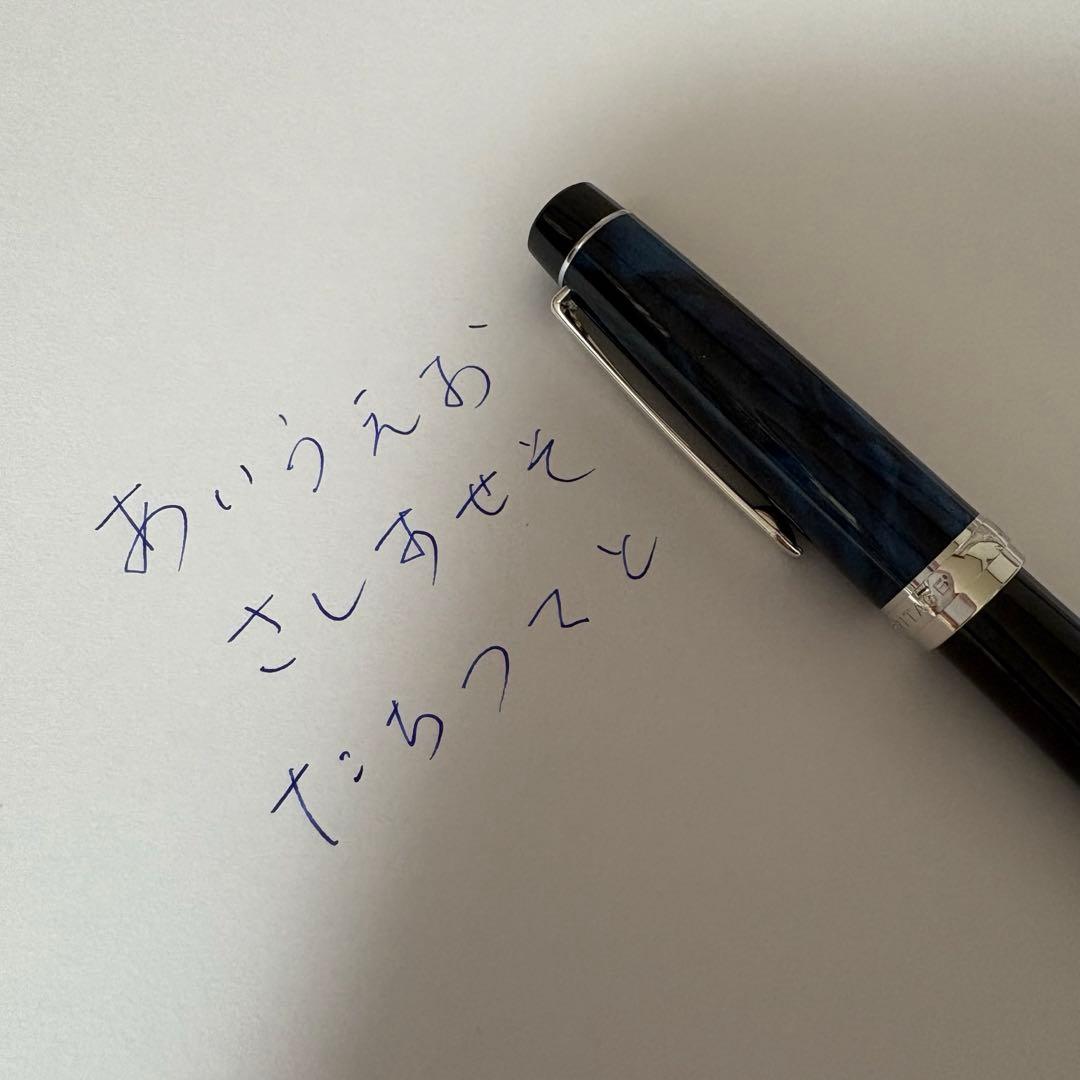 あいうえお
さしあせそ
たちつてと